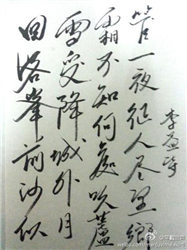 回洛峯前沙似
雪受降城外月
霜不知何處吹蘆
管一夜征人尽望鄉
李益诗